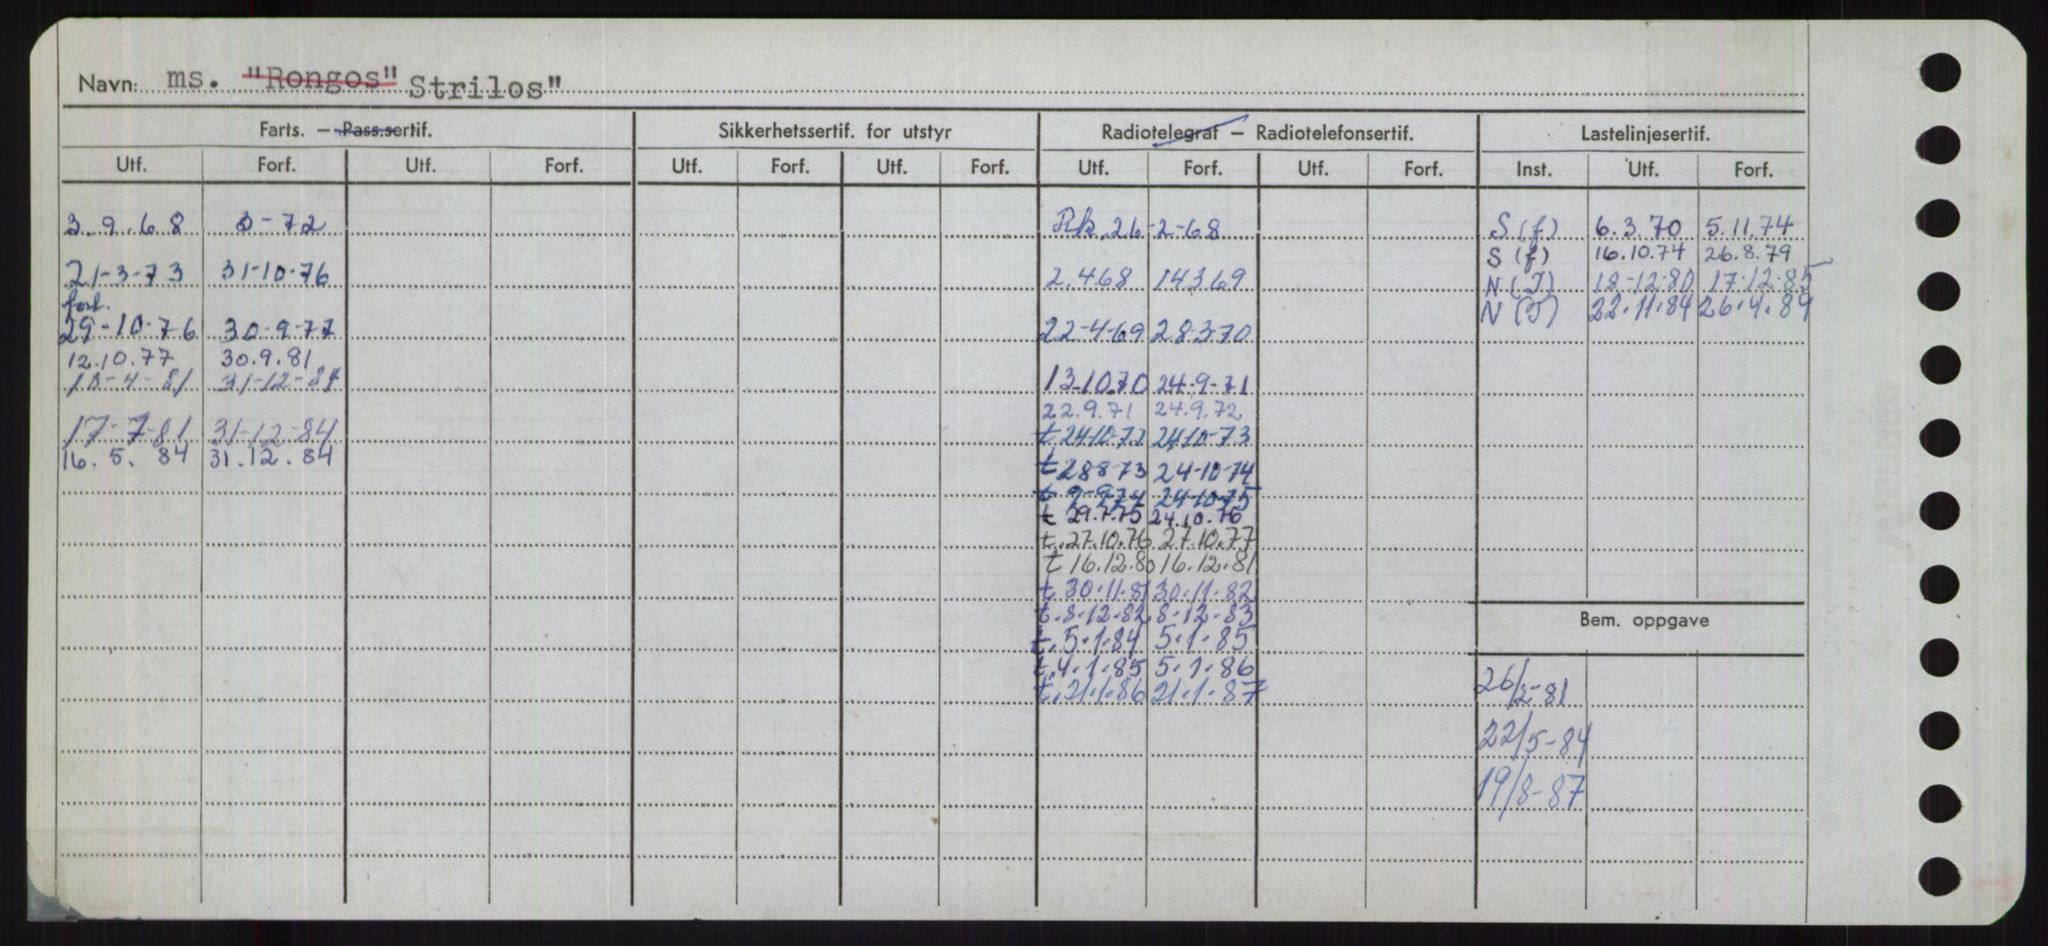 Navn: ms. "Rongos" Strilos"
Farts. — Pass.sertif. Sikkerhetssertif. for utstyr Radiotelegraf — Radiotelefonsertif. Lastelinjesertif.
Utf. Forf. Utf. Forf. Utf. Forf. Utf. Forf. Utf. Forf. Utf. Forf. Inst. Utf. Forf.
3.9.68 3-72 Rk. 26-2-68 S (f) 6.3.70 5.11.74
S (f) 16.10.74 26.8.79
21-3-73 31-10-76 2.468 14369 N (I) 18-12-80 17-12-85
forl. N (I) 22.11.84 26.4.89
29-10-76 30-9-77 22-4-69 28-3-70
12.10.77 30.9.81
10-4-81 31-12-84 13-10.70 24-9-71
22.9.71 24.9.72
17-7-81 31-12-84 t 24-10-72 24-10-73
16.5.84 31.12.84 t 28-8-73 24-10-74
t 9-9-74 24-10-75
t 29.7.75 24.10.76
t. 27.10.76 27.10.77
t 16.12.80 16.12.81
t 30.11.81 30.11.82
t. 8.12.82 8.12.83
t. 5.1.84 5.1.85
t. 4.1.85 5.1.86
t. 21.1.86 21.1.87
Bem. oppgave
26/2-81
22/5-84
19/8-87